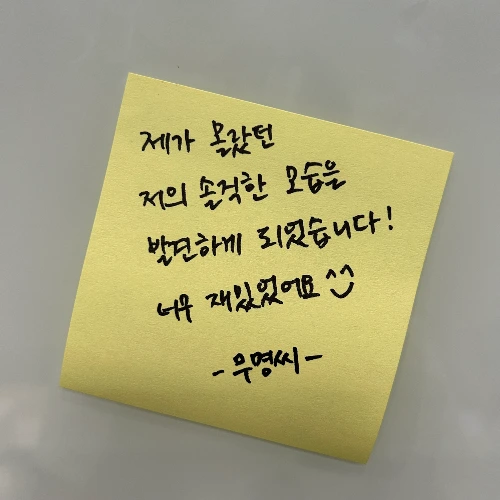 제가 몰랐던
저의 솔직한 모습을
발견하게 되었습니다!
너무 재밌었어요 ^^
- 우명씨 -